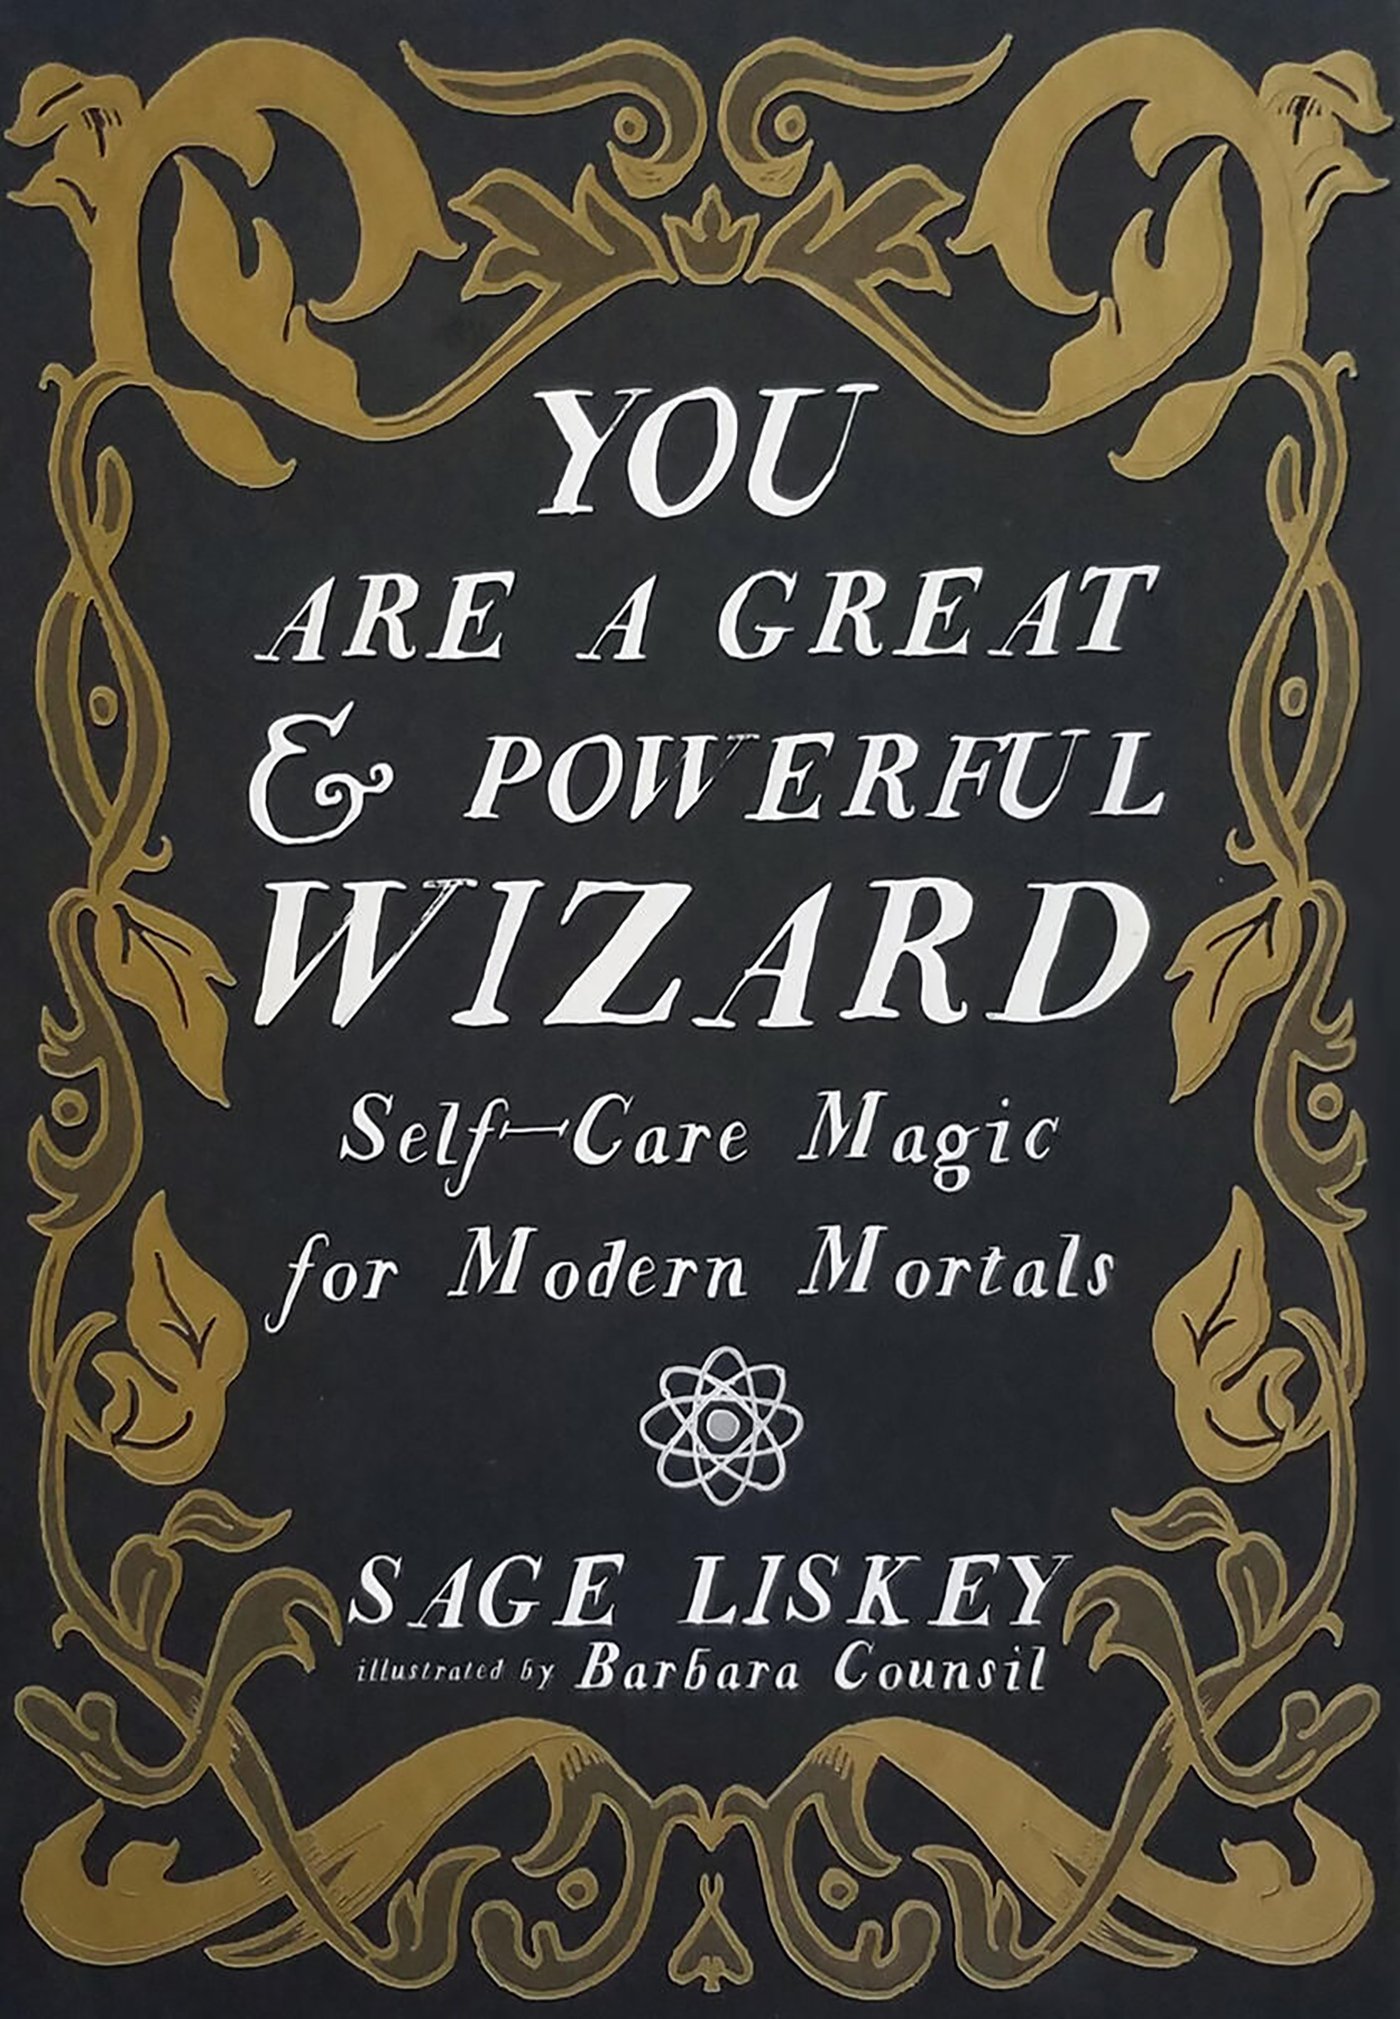 YOU
ARE A GREAT
& POWERFUL
WIZARD
Self-Care Magic
for Modern Mortals
SAGE LISKEY
illustrated by Barbara Counsil